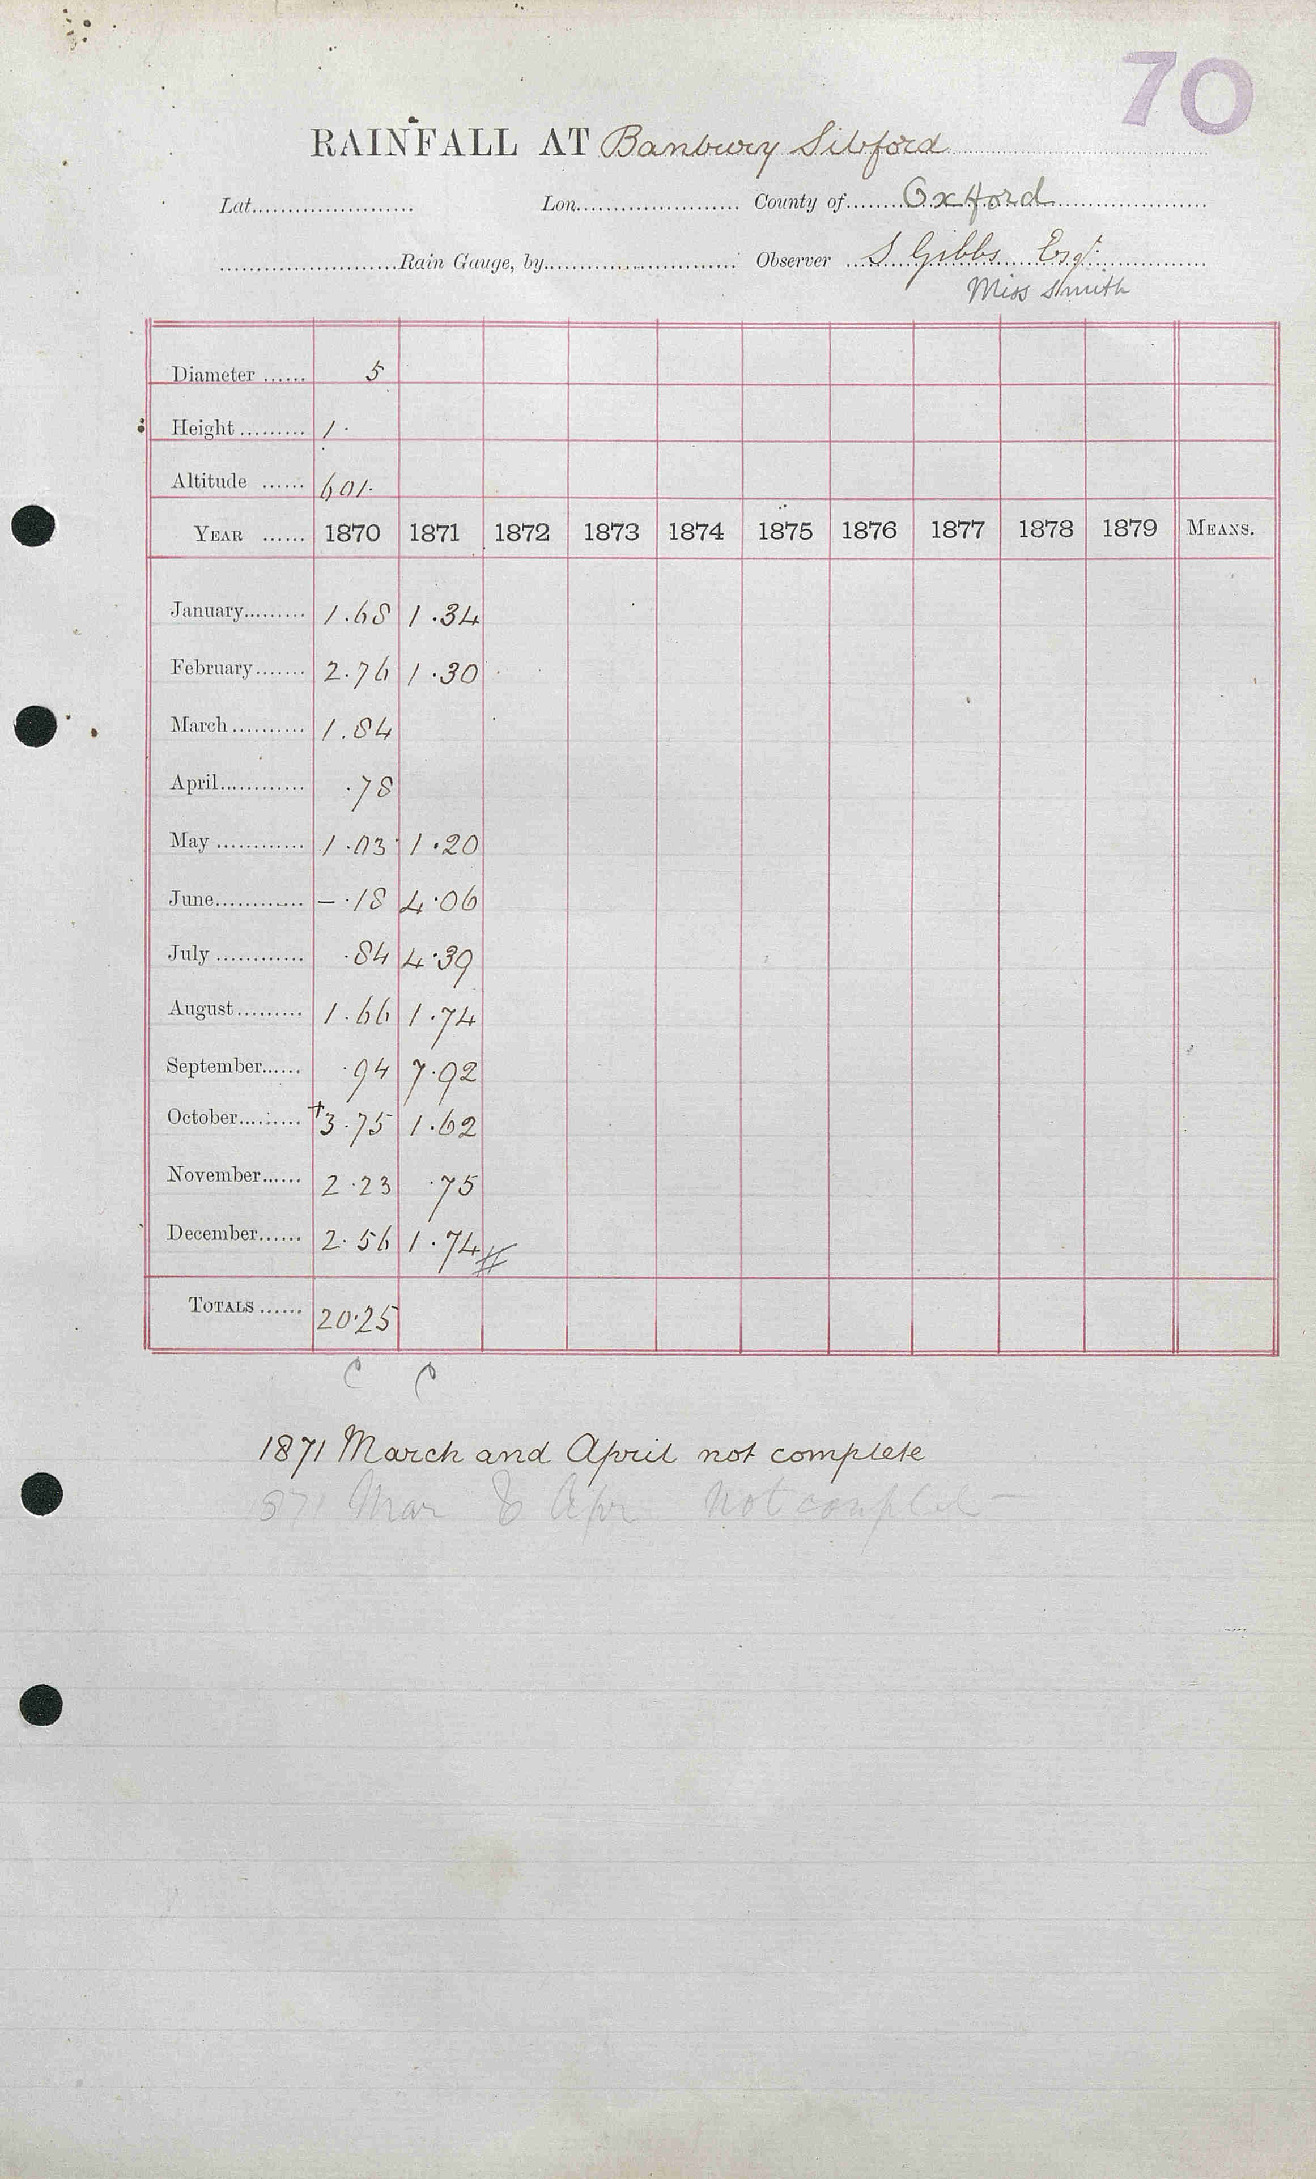 70
RAINFALL AT Banbury Sibford
Lat. Lon. County of Oxford
Rain Gauge, by Observer S Gibbs Esqr.
Miss Smith
Diameter 5
Height 1.
Altitude 601.
YEAR 1870 1871 1872 1873 1874 1875 1876 1877 1878 1879 MEANS.
January 1.68 1.34
February 2.76 1.30
March 1.84
April .78
May 1.03 1.20
June — .18 4.06
July .84 4.39
August 1.66 1.74
September .94 7.92
October +3.75 1.62
November 2.23 .75
December 2.56 1.74
TOTALS 20.25
1871 March and April not complete
1871 Mar & Apr Not complete